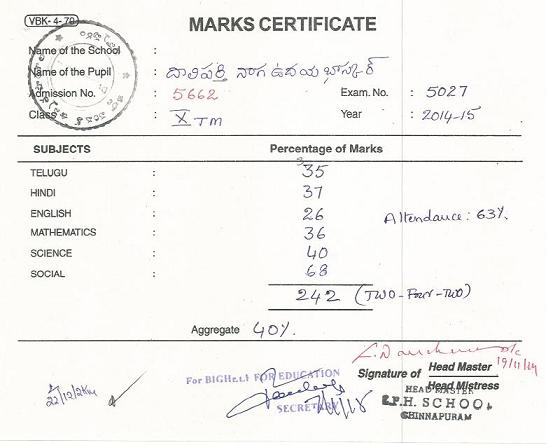 VBK-4-79
MARKS CERTIFICATE
Name of the School :
Name of the Pupil : దాలిపర్తి నాగ ఉదయ భాస్కర్
Admission No. : 5662 Exam. No. : 5027
Class : X TM Year : 2014-15
SUBJECTS Percentage of Marks
TELUGU : 35
HINDI : 37
ENGLISH : 26 Attendance: 63%
MATHEMATICS : 36
SCIENCE : 40
SOCIAL : 68
242 (TWO-Four-TWO)
Aggregate 40%
19/11/14
For EDUCATION
SECRETARY
Signature of Head Master
Head Mistress
HEAD MASTER
Z.P.H. SCHOOL
CHINNAPURAM